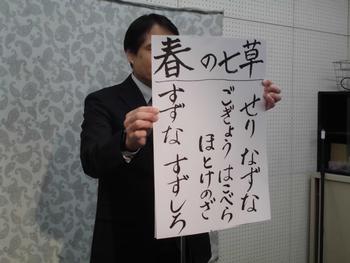 春の七草
せり なずな
ごぎょう はこべら
ほとけのざ
すずな すずしろ